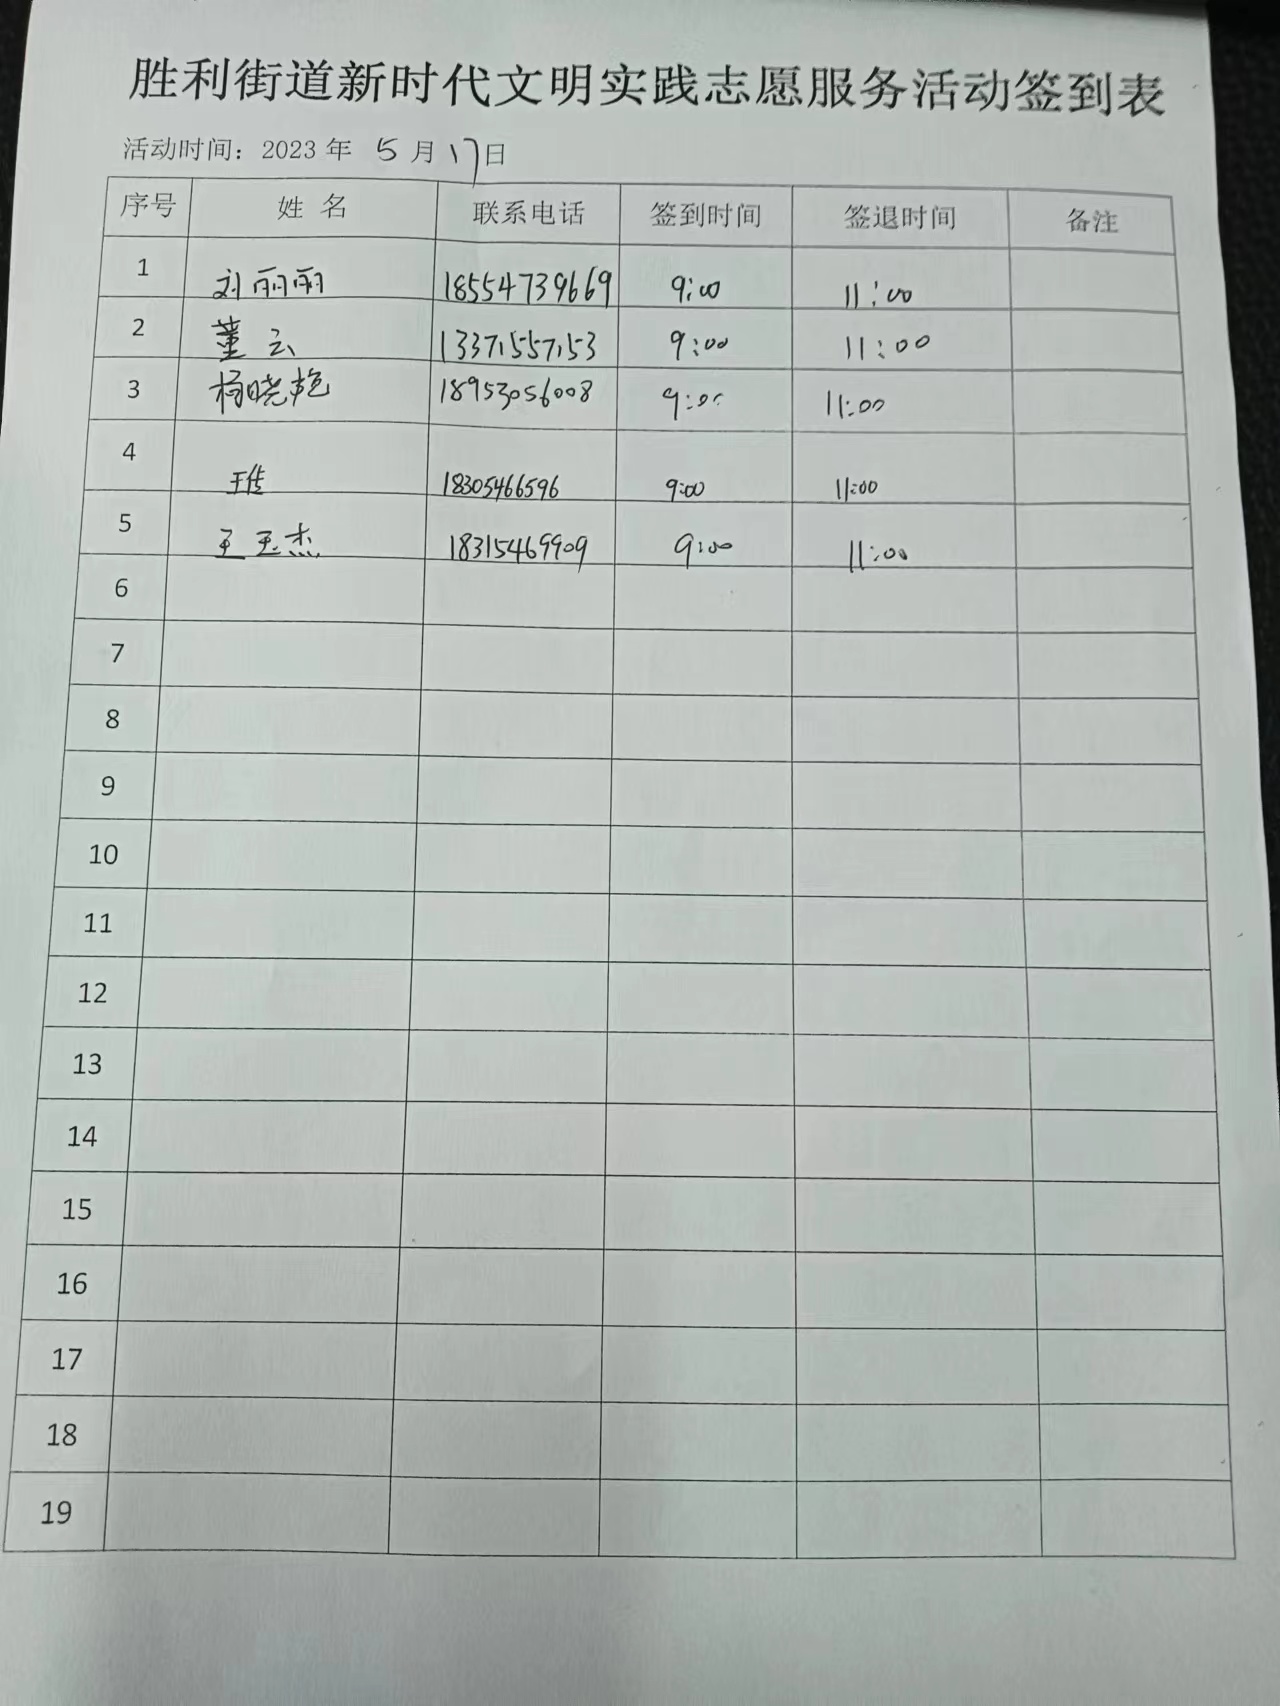 胜利街道新时代文明实践志愿服务活动签到表
活动时间：2023 年 5 月 17日
序号 姓 名 联系电话 签到时间 签退时间 备注
1 刘丽丽 18554739669 9:00 11:00
2 董云 13371557153 9:00 11:00
3 杨晓艳 18953056008 9:00 11:00
4 王佳 18305466596 9:00 11:00
5 王玉杰 18315469909 9:00 11:00
6
7
8
9
10
11
12
13
14
15
16
17
18
19